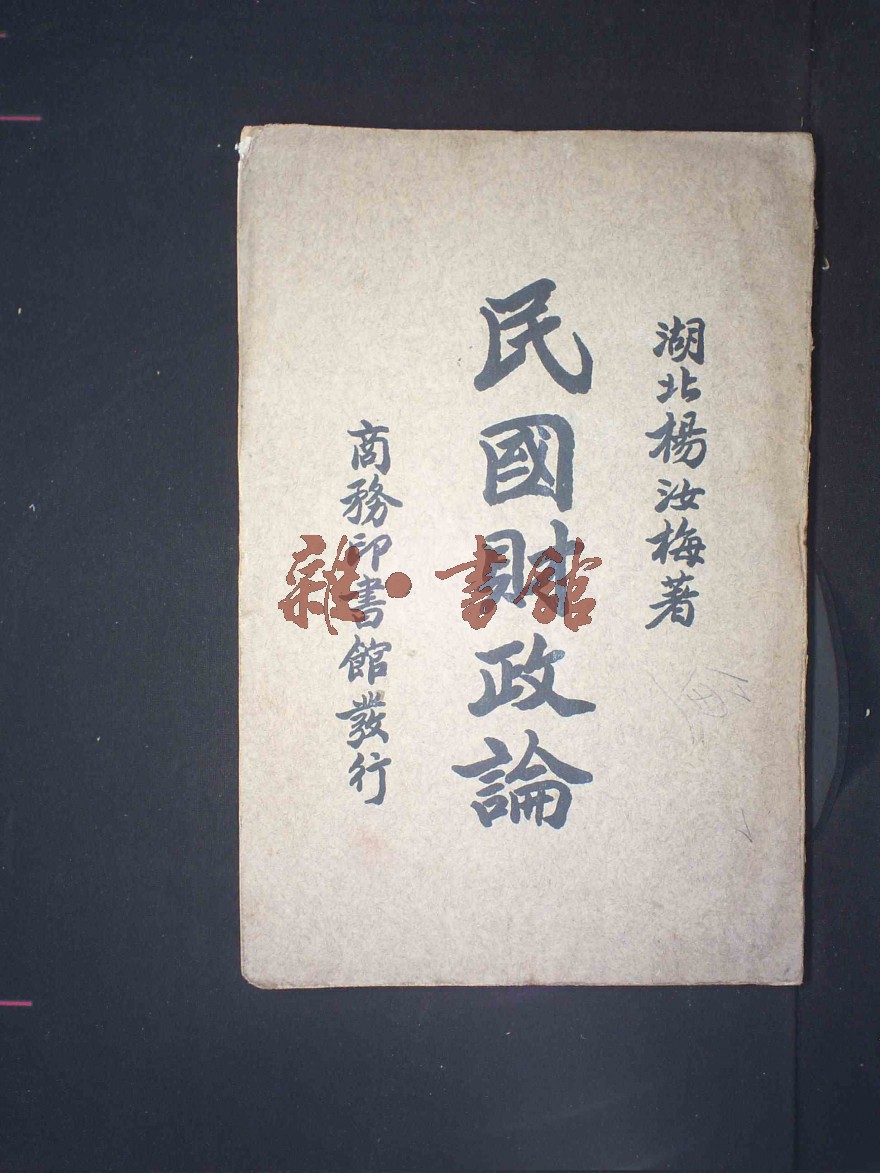 湖北楊汝梅著
民國財政論
商務印書館發行
雜·書館